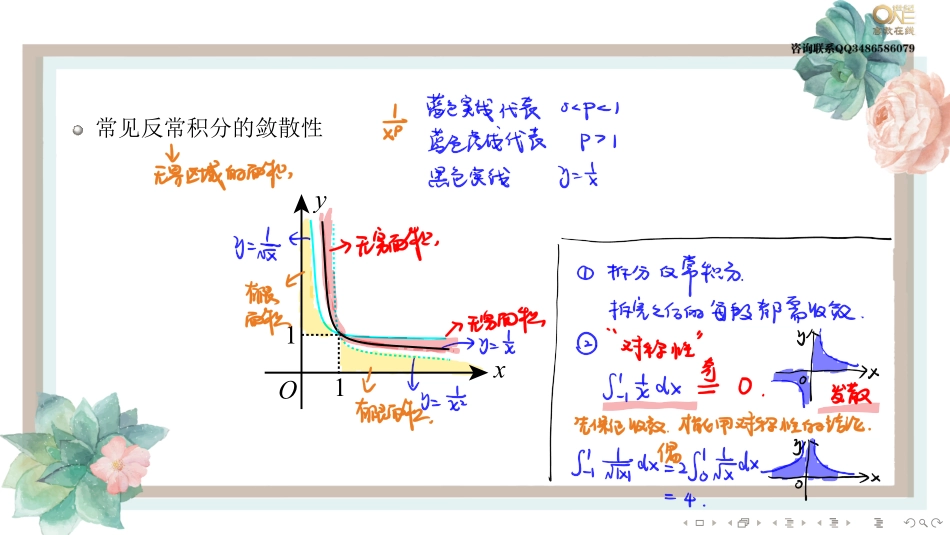 ONE
高数在线
咨询联系QQ3486586079
常见反常积分的敛散性
无界区域的面积,
1/x^P
蓝色实线代表 0<P<1
蓝色虚线代表 P>1
黑色实线 y=1/x
y
y=1/√x
无穷面积,
有限
面积,
无穷面积,
y=1/x
1
O
1
x
有限面积,
y=1/x²
① 拆分反常积分.
拆完之后的每段都需收敛.
② “对称性”
∫₋₁¹ 1/x dx 奇= 0.
y
x
0
发散
先保证收敛.才能用对称性的结论.
∫₋₁¹ 1/√|x| dx 偶= 2∫₀¹ 1/√x dx
= 4.
y
x
0